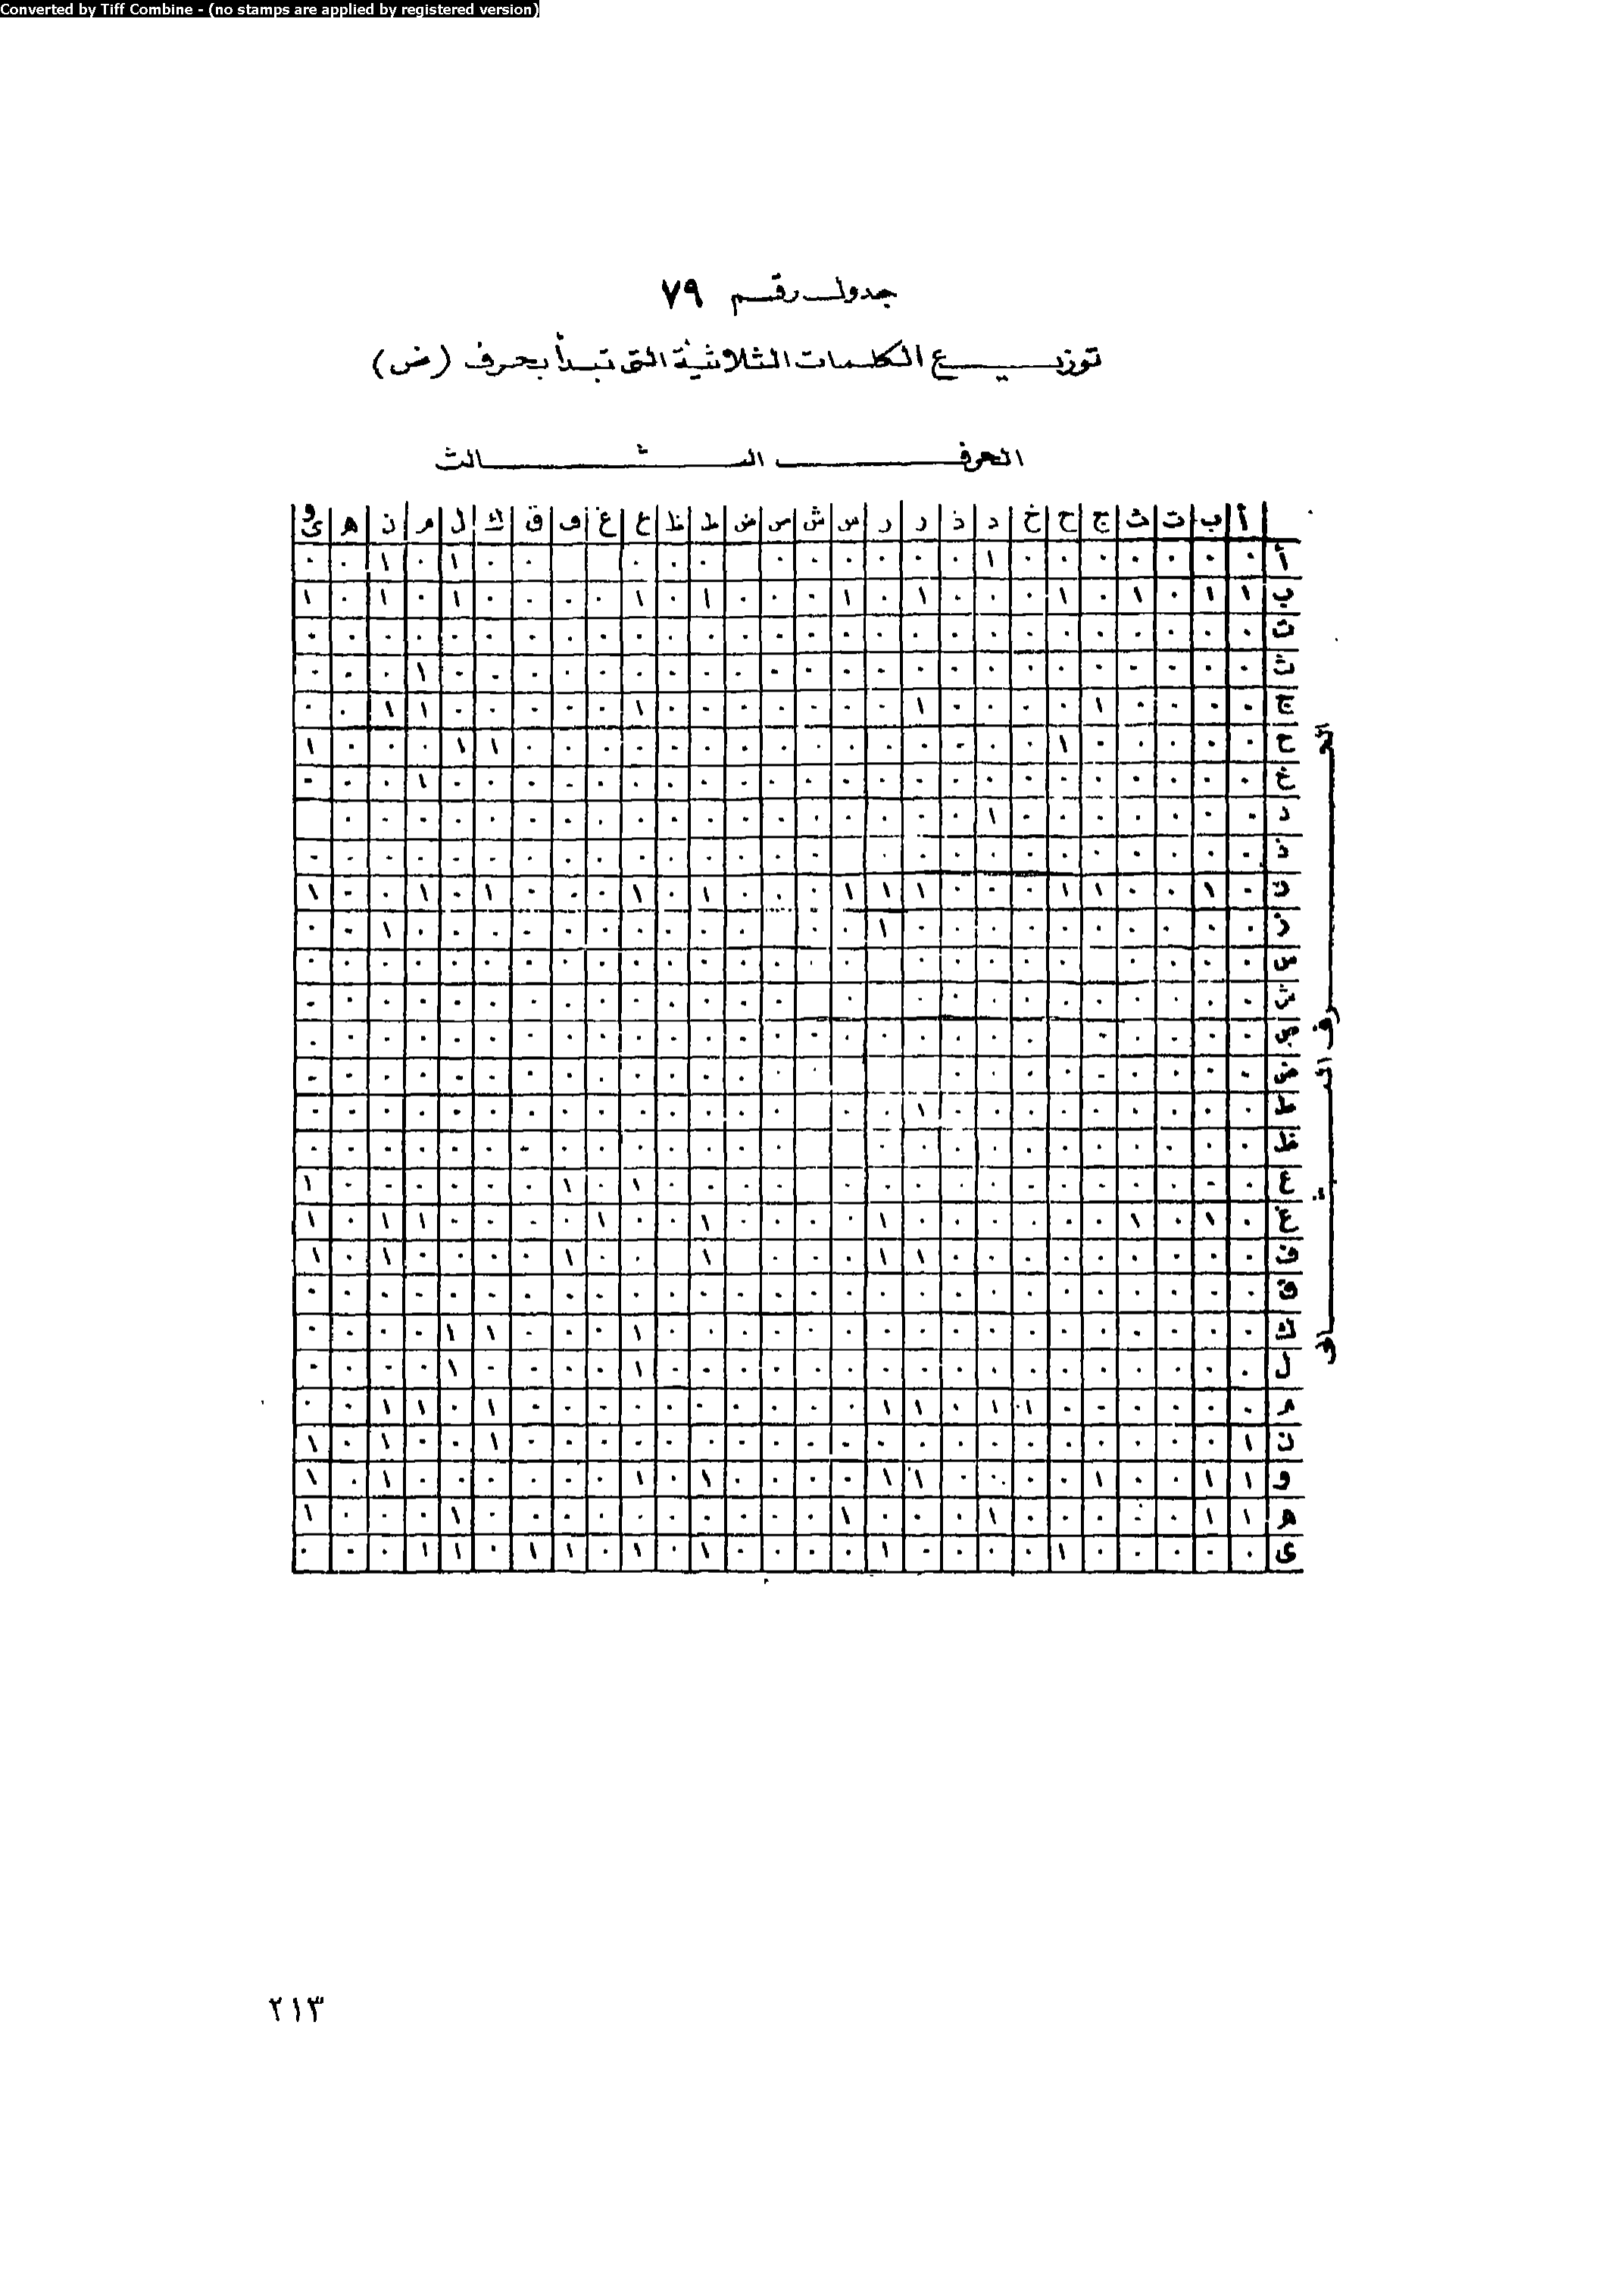 Converted by Tiff Combine - (no stamps are applied by registered version)
جدول رقم ٧٩
توزيع الكلمات الثلاثية التى تبدأ بحرف (ض)
الحرف الثالث
أ ب ت ث ج ح خ د ذ ر ر س ش ص ض ط ظ ع غ ف ق ك ل م ن ه و ى
أ ٠ ٠ ٠ ٠ ٠ ٠ ٠ ١ ٠ ٠ ٠ ٠ ٠ ٠ ٠ ٠ ٠ ٠ ٠ ١ ٠ ١ ٠ ٠
ب ١ ١ ٠ ١ ٠ ١ ٠ ٠ ٠ ١ ٠ ١ ٠ ٠ ٠ ١ ٠ ١ ٠ ٠ ٠ ٠ ١ ٠ ١ ٠ ١
ت ٠ ٠ ٠ ٠ ٠ ٠ ٠ ٠ ٠ ٠ ٠ ٠ ٠ ٠ ٠ ٠ ٠ ٠ ٠ ٠ ٠ ٠ ٠ ٠ ٠ ٠ ٠
ث ٠ ٠ ٠ ٠ ٠ ٠ ٠ ٠ ٠ ٠ ٠ ٠ ٠ ٠ ٠ ٠ ٠ ٠ ٠ ٠ ٠ ٠ ٠ ١ ٠ ٠ ٠
ج ٠ ٠ ٠ ٠ ١ ٠ ٠ ٠ ٠ ١ ٠ ٠ ٠ ٠ ٠ ٠ ٠ ١ ٠ ٠ ٠ ٠ ٠ ١ ١ ٠ ٠
ح ٠ ٠ ٠ ٠ ٠ ١ ٠ ٠ ٠ ٠ ٠ ٠ ٠ ٠ ٠ ٠ ٠ ٠ ٠ ٠ ٠ ١ ١ ٠ ٠ ٠ ١
خ ٠ ٠ ٠ ٠ ٠ ٠ ٠ ٠ ٠ ٠ ٠ ٠ ٠ ٠ ٠ ٠ ٠ ٠ ٠ ٠ ٠ ٠ ٠ ١ ٠ ٠ ٠
د ٠ ٠ ٠ ٠ ٠ ٠ ٠ ١ ٠ ٠ ٠ ٠ ٠ ٠ ٠ ٠ ٠ ٠ ٠ ٠ ٠ ٠ ٠ ٠ ٠ ٠
ذ ٠ ٠ ٠ ٠ ٠ ٠ ٠ ٠ ٠ ٠ ٠ ٠ ٠ ٠ ٠ ٠ ٠ ٠ ٠ ٠ ٠ ٠ ٠ ٠ ٠ ٠
ر ٠ ١ ٠ ٠ ١ ١ ٠ ٠ ٠ ١ ١ ١ ٠ ٠ ٠ ١ ٠ ١ ٠ ٠ ٠ ١ ٠ ١ ٠ ٠ ١
ز ٠ ٠ ٠ ٠ ٠ ٠ ٠ ٠ ٠ ٠ ١ ٠ ٠ ٠ ٠ ٠ ٠ ٠ ٠ ٠ ٠ ٠ ٠ ١ ٠ ٠
س ٠ ٠ ٠ ٠ ٠ ٠ ٠ ٠ ٠ ٠ ٠ ٠ ٠ ٠ ٠ ٠ ٠ ٠ ٠ ٠ ٠ ٠ ٠ ٠ ٠ ٠
ش ٠ ٠ ٠ ٠ ٠ ٠ ٠ ٠ ٠ ٠ ٠ ٠ ٠ ٠ ٠ ٠ ٠ ٠ ٠ ٠ ٠ ٠ ٠ ٠ ٠
ص ٠ ٠ ٠ ٠ ٠ ٠ ٠ ٠ ٠ ٠ ٠ ٠ ٠ ٠ ٠ ٠ ٠ ٠ ٠ ٠ ٠ ٠ ٠ ٠ ٠ ٠
ض ٠ ٠ ٠ ٠ ٠ ٠ ٠ ٠ ٠ ٠ ٠ ٠ ٠ ٠ ٠ ٠ ٠ ٠ ٠ ٠ ٠ ٠ ٠ ٠
ط ٠ ٠ ٠ ٠ ٠ ٠ ٠ ٠ ٠ ١ ٠ ٠ ٠ ٠ ٠ ٠ ٠ ٠ ٠ ٠ ٠ ٠ ٠ ٠ ٠ ٠
ظ ٠ ٠ ٠ ٠ ٠ ٠ ٠ ٠ ٠ ٠ ٠ ٠ ٠ ٠ ٠ ٠ ٠ ٠ ٠ ٠ ٠ ٠ ٠ ٠ ٠ ٠
ع ٠ ٠ ٠ ٠ ٠ ٠ ٠ ٠ ٠ ٠ ٠ ٠ ٠ ٠ ٠ ٠ ١ ٠ ١ ٠ ٠ ٠ ٠ ٠ ٠ ١
غ ٠ ١ ٠ ١ ٠ ٠ ٠ ٠ ٠ ٠ ١ ٠ ٠ ٠ ٠ ١ ٠ ٠ ١ ٠ ٠ ٠ ٠ ١ ١ ٠ ١
ف ٠ ٠ ٠ ٠ ٠ ٠ ٠ ٠ ٠ ١ ١ ٠ ٠ ٠ ١ ٠ ٠ ١ ٠ ٠ ٠ ٠ ١ ٠ ١
ق ٠ ٠ ٠ ٠ ٠ ٠ ٠ ٠ ٠ ٠ ٠ ٠ ٠ ٠ ٠ ٠ ٠ ٠ ٠ ٠ ٠ ٠ ٠ ٠ ٠ ٠ ٠
ك ٠ ٠ ٠ ٠ ٠ ٠ ٠ ٠ ٠ ٠ ٠ ٠ ٠ ٠ ٠ ٠ ٠ ١ ٠ ٠ ٠ ١ ١ ٠ ٠ ٠ ٠
ل ٠ ٠ ٠ ٠ ٠ ٠ ٠ ٠ ٠ ٠ ٠ ٠ ٠ ٠ ٠ ٠ ٠ ١ ٠ ٠ ٠ ٠ ١ ٠ ٠ ٠ ٠
م ٠ ٠ ٠ ٠ ٠ ٠ ١ ١ ٠ ١ ١ ٠ ٠ ٠ ٠ ٠ ٠ ٠ ٠ ٠ ٠ ١ ٠ ١ ١ ٠ ٠
ن ١ ٠ ٠ ٠ ٠ ٠ ٠ ٠ ٠ ٠ ٠ ٠ ٠ ٠ ٠ ٠ ٠ ٠ ٠ ٠ ٠ ١ ٠ ٠ ١ ٠ ١
و ١ ١ ٠ ٠ ١ ٠ ٠ ٠ ٠ ١ ١ ٠ ٠ ٠ ٠ ١ ٠ ١ ٠ ٠ ٠ ٠ ٠ ٠ ١ ٠ ١
ه ١ ١ ٠ ٠ ٠ ٠ ٠ ١ ٠ ٠ ٠ ١ ٠ ٠ ٠ ٠ ٠ ٠ ٠ ٠ ٠ ٠ ١ ٠ ٠ ٠ ١
ى ٠ ٠ ٠ ٠ ٠ ١ ٠ ٠ ٠ ٠ ١ ٠ ٠ ٠ ٠ ١ ٠ ١ ٠ ١ ١ ٠ ١ ١ ٠ ٠ ٠
الحرف الثانى
٢١٣